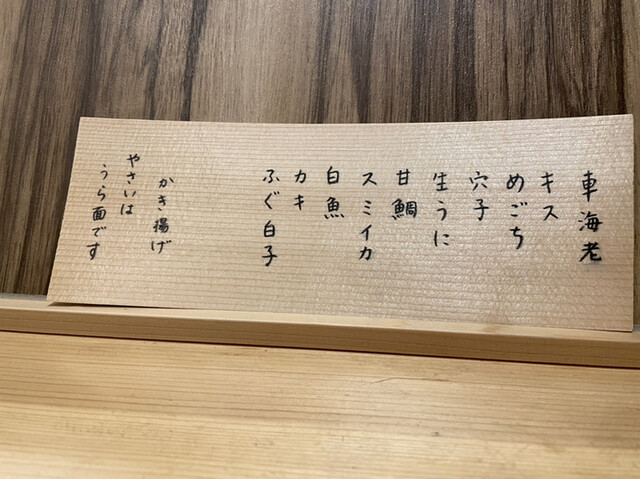 車海老
キス
めごち
穴子
生うに
甘鯛
スミイカ
白魚
カキ
ふぐ白子
かき揚げ
やさいは
うら面です